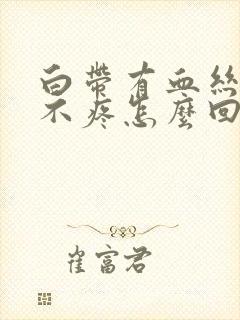 白帶有血絲
不疼怎麼回
崔富君